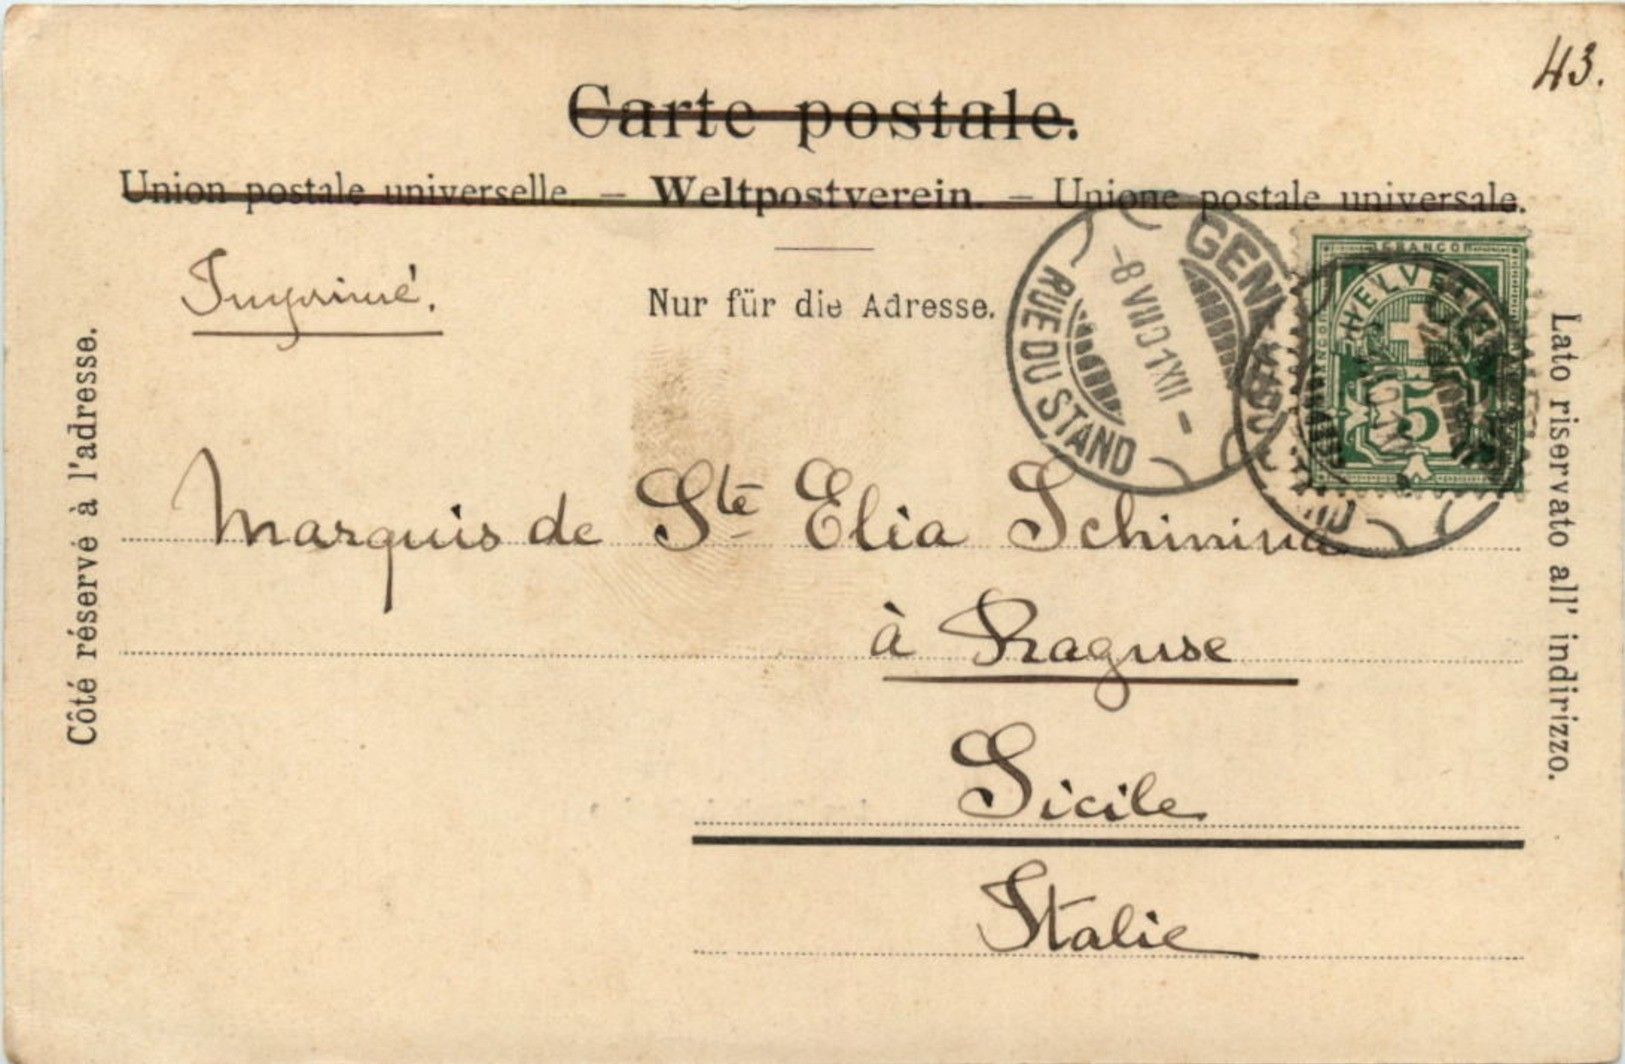 43.
Carte postale.
Union postale universelle. — Weltpostverein. — Unione postale universale.
Imprimé.
Nur für die Adresse.
Côté réservé à l'adresse.
Lato riservato all' indirizzo.
RUE DU STAND
-8 VII 01 XII -
FRANCO
HELVETIA
5
Marquis de Ste Elia Schinina
à Raguse
Sicile
Italie